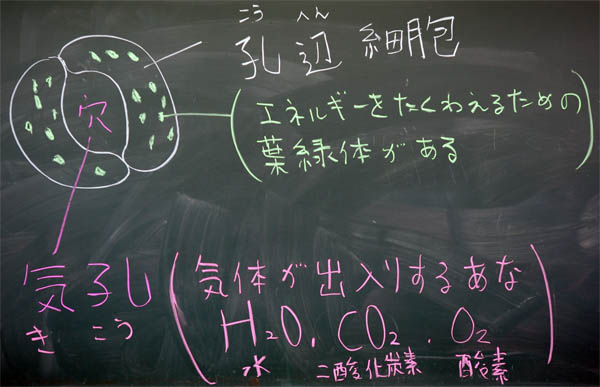 こう へん
孔辺細胞
穴
(エネルギーをたくわえるための
葉緑体がある)
気孔
き こう
(気体が出入りするあな
H₂O、CO₂、O₂)
水 二酸化炭素 酸素